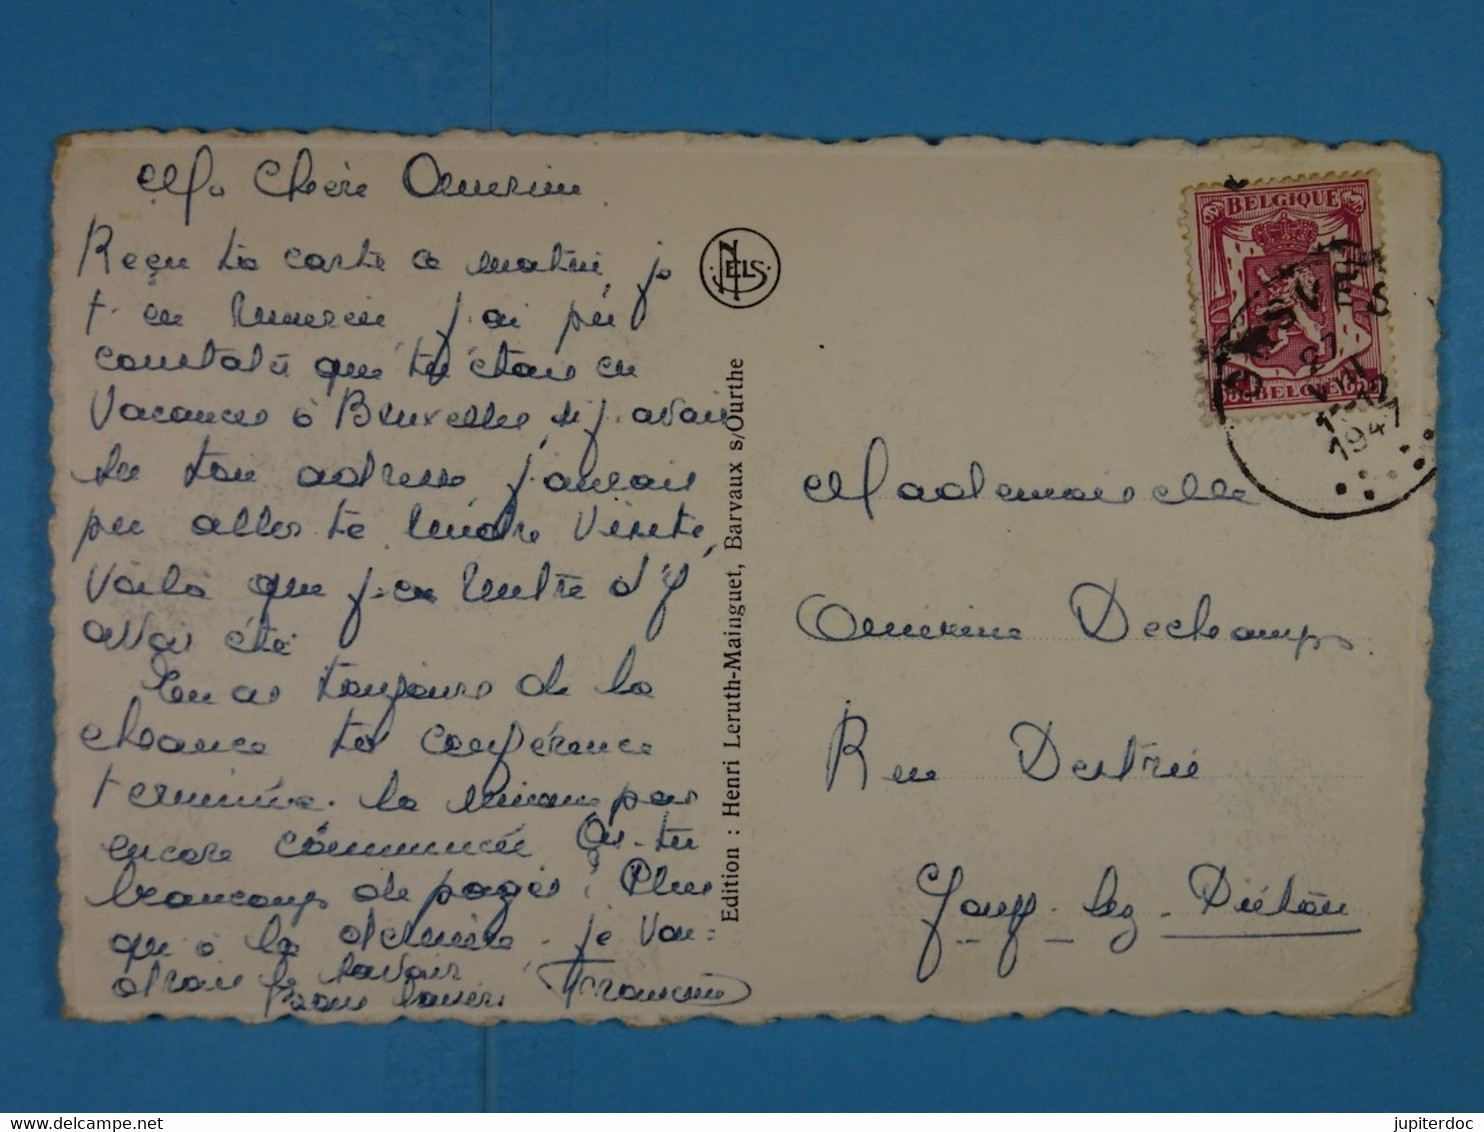 Ma Chère Omérine
Reçu ta carte ce matin je
t'en remercie j'ai pu
constater que tu étais en
Vacances à Bruxelles, si j'avais
su ton adresse, j'aurais
pu aller te rendre visite,
Voilà que j'en rentre d'y
avoir été.
Tu as toujours de la
chance ta conférence
terminée. la mienne pas
encore commencée. As-tu
beaucoup de pages? Plus
qu'à la dernière. je vou-
drais le savoir
Bons baisers Francine
NELS
Edition : Henri Leruth-Mainguet, Barvaux s/Ourthe
BELGIQUE
BELGIE
27
VIII
1947
Mademoiselle
Omérine Dechamps.
Rue Destrée
Gouy-lez-Piéton
jupiterdoc